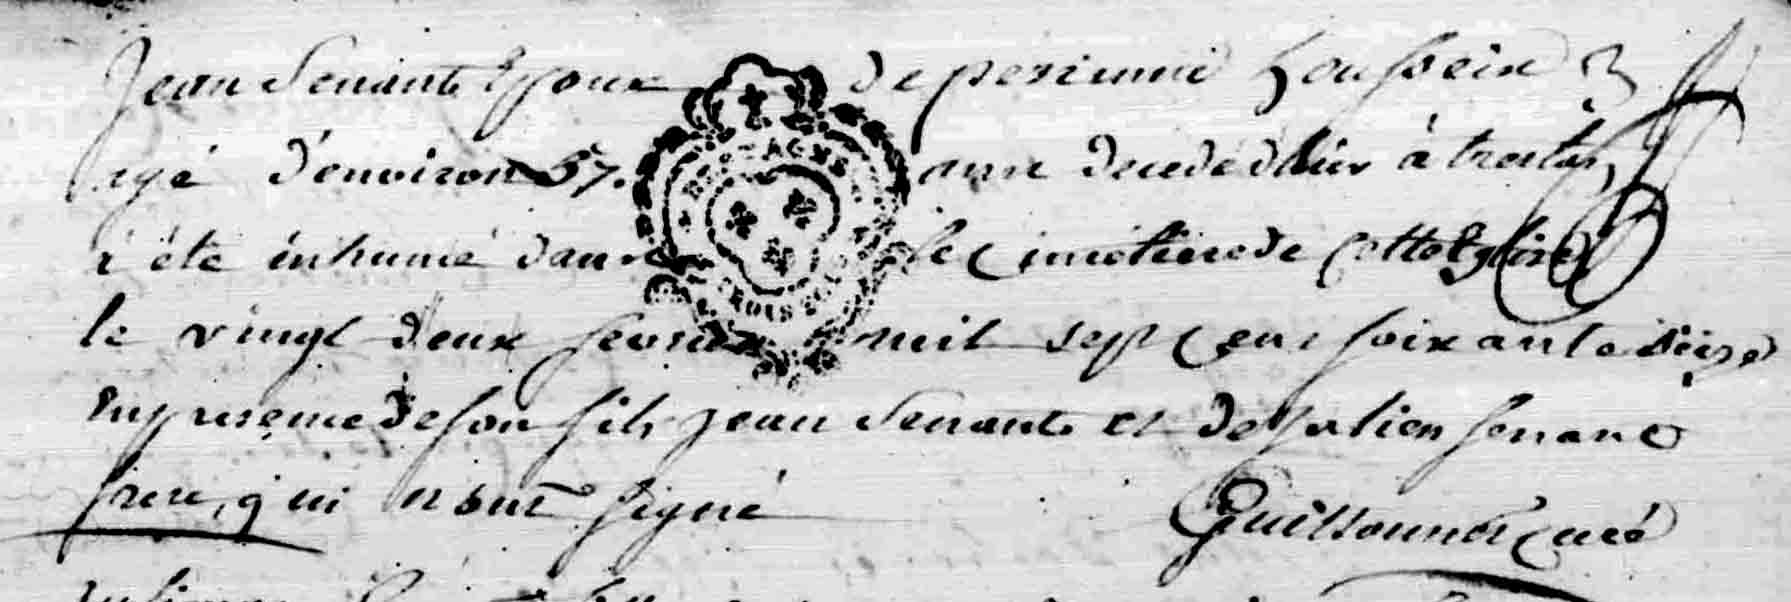 Jean Senant Epoux de perinne houssein
agé d'environ 57. ans decedé d'hier à
a été inhumé dans le Cimetiere de Cette Eglise
le vingt deux fevrier mil sept Cens soixante seize
En presence de son fils Jean Senant et de Julien Senant
frere, qui n'ont signé
Guillonnet Curé
BRETAGNE
TROIS